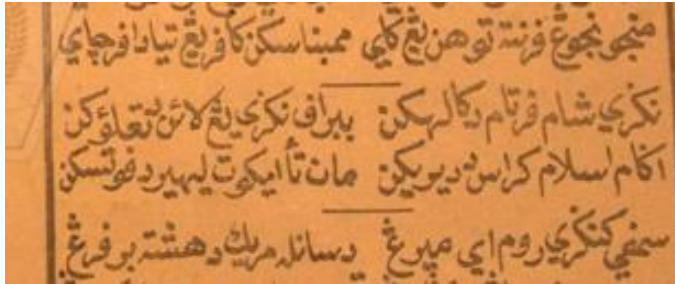 منجونجوڠ فرنته توهن يڠ کاي ممبناسکن کافر يڠ تياد افرچاي
نکري شام فرتام دکالهکن ببراف نکري يڠ لائن دتعلوٴکن
اکام اسلام کراس دديريکن مان تأ ايکوت ليهير دفوتسکن
سمفي کنکري روم اي مپرڠ دسانله مريك دهشته برفرڠ